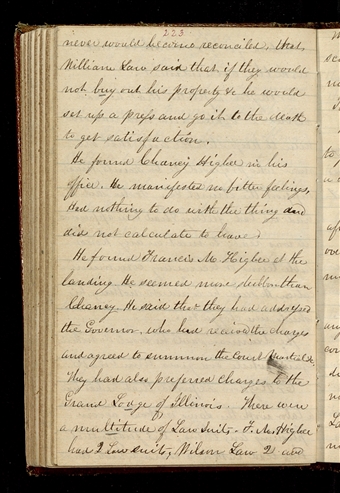 223
never would become reconciled, that
William Law said that if they would
not buy out his property &c he would
set up a press and go it to the death
to get satisfaction.
He found Chancy Higbee in his
office. He manifested no bitter feelings,
Had nothing to do with the thing and
did not calculate to leave.
He found Francis M. Higbee at the
landing He seemed more stubborn than
Chancy. He said that they had addressed
the Governor, who had received the charges
and agreed to summon the Court Martial &c.
They had also prefered charges to the
Grand Lodge of Illinois. There were
a multitude of Law Suits - F. M. Higbee
had 2 Law suits, Wilson Law 2 and